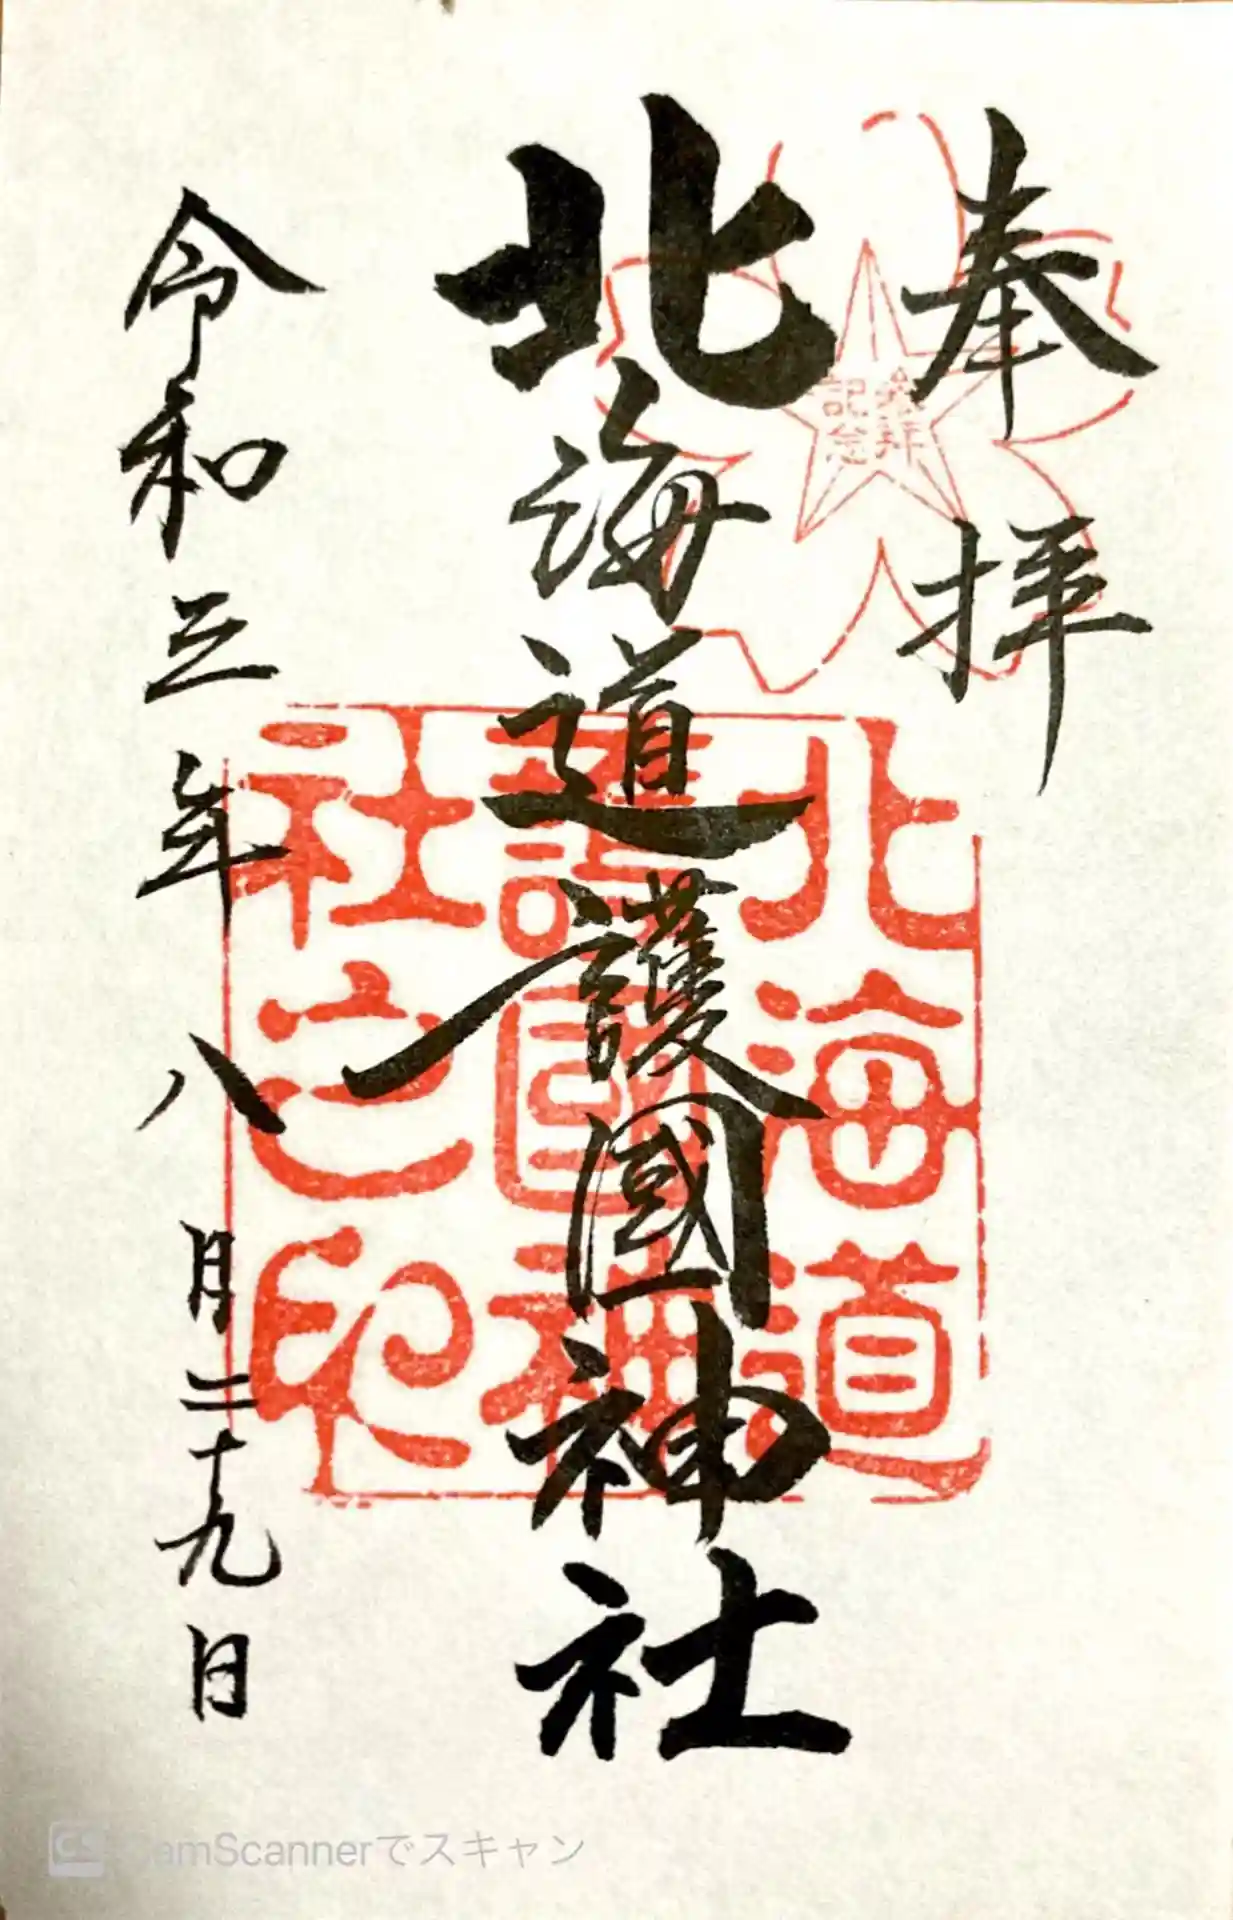 奉拝
参拝
記念
北海道護國神社
北海道
護国神
社之印
令和三年八月二十九日
CS CamScannerでスキャン